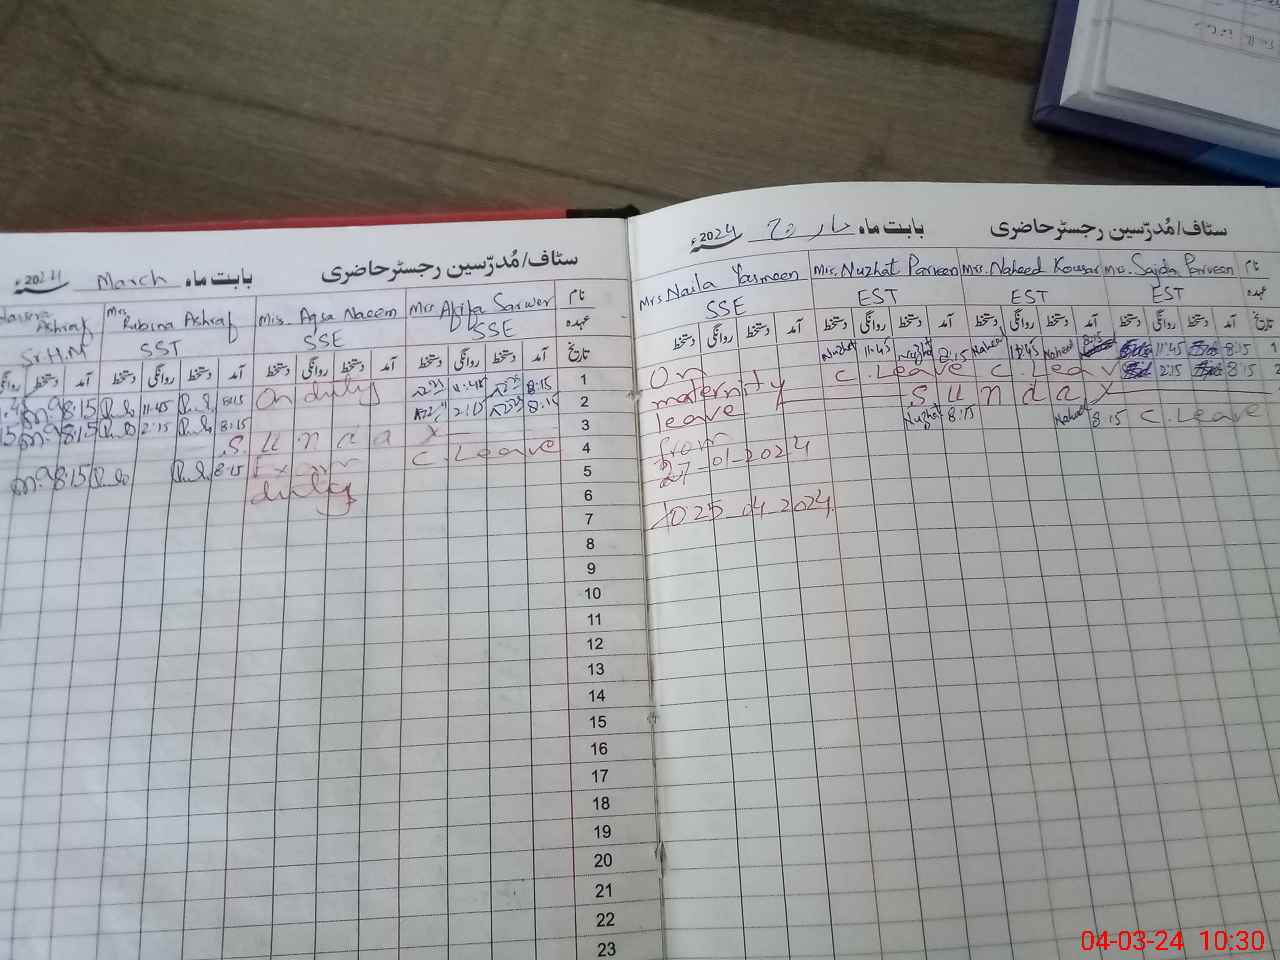 سٹاف/مُدرّسین رجسٹر حاضری بابت ماہ March
Ashraf Mrs. Rubina Ashraf Mrs. Aqsa Naeem Mrs. Akifa Sarwer نام
Sr.H.M SST SSE SSE عہدہ
روانگی دستخط آمد دستخط روانگی دستخط آمد دستخط روانگی دستخط آمد دستخط روانگی دستخط آمد تاریخ
8:15 11:45 8:15 On duty 11:45 8:15 1
8:15 2:15 8:15 2:15 8:15 2
S u n d a y 3
8:15 8:15 Exam C. Leave 4
duty 5
6
7
8
9
10
11
12
13
14
15
16
17
18
19
20
21
22
23
سٹاف/مُدرّسین رجسٹر حاضری بابت ماہ مارچ 2024ء
Mrs Naila Yasmeen Mrs. Nuzhat Parveen Mrs. Naheed Kousar Ms. Sajda Parveen نام
SSE EST EST EST عہدہ
دستخط روانگی دستخط آمد دستخط روانگی دستخط آمد دستخط روانگی دستخط آمد دستخط روانگی دستخط آمد
On Nuzhat 11:45 Nuzhat 8:15 Naheed 11:45 Naheed 8:15 11:45 8:15 1
maternity C. Leave C. Leav 2:15 8:15 2
leave S u n d a y
from Nuzhat 8:15 Naheed 8:15 C. Leave
27-01-2024
to 25 04 2024
04-03-24 10:30